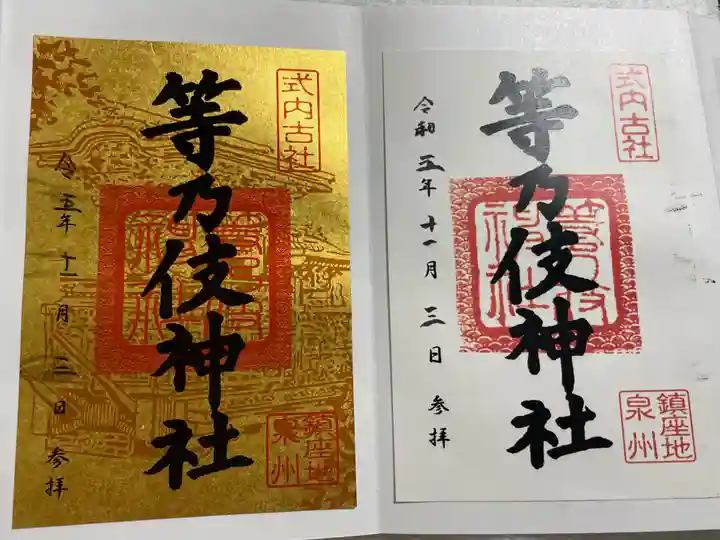 式内古社
等乃伎神社
令五年十一月三日参拝
鎮座地
泉州
式内古社
等乃伎神社
令和五年十一月三日参拝
等乃伎
神社
鎮座地
泉州